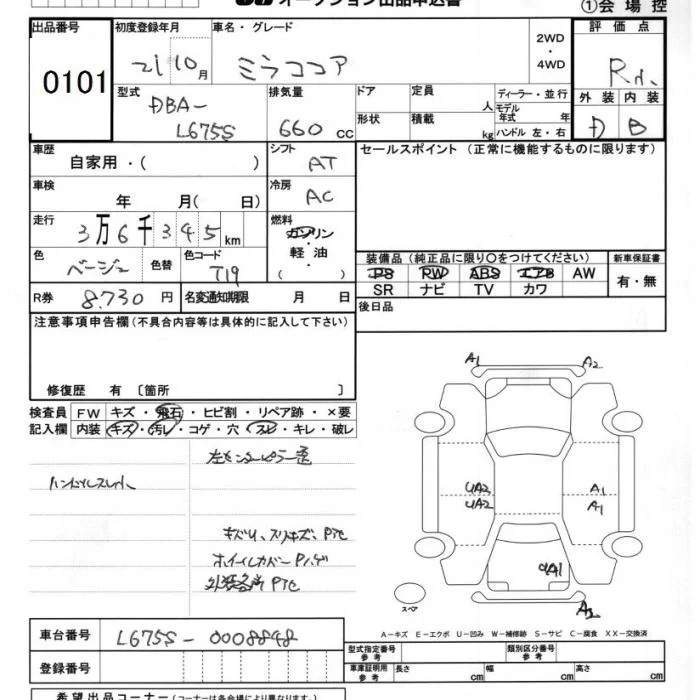 オークション出品申込書
①会場控
出品番号
0101
初度登録年月
21 10月
車名・グレード
ミラココア
2WD
・
4WD
評価点
R
外装 内装
D B
型式
DBA-
L675S
排気量
660 cc
ドア
定員 人
形状
積載 kg
ディーラー・並行
モデル
年式 年
ハンドル 左・右
車歴
自家用・( )
シフト
AT
セールスポイント (正常に機能するものに限ります)
車検
年 月( 日)
冷房
AC
走行
3万6千345km
燃料
ガソリン
軽油
( )
色
ベージュ
色替
色コード
T19
装備品 (純正品に限り〇をつけてください)
PS RW ABS エアB AW
SR ナビ TV カワ
新車保証書
有・無
R券 8.730円
名変通知期限 月 日
後日品
注意事項申告欄 (不具合内容等は具体的に記入して下さい)
修復歴 有 [箇所 ]
検査員
記入欄
FW キズ・飛石・ヒビ割・リペア跡・×要
内装 キズ・汚レ・コゲ・穴・スレ・キレ・破レ
左センターピラー歪
ハンドルスレ小
キズ凹、スリキズ、Pテヒ
ホイールカバーPハゲ
外装各所Pテヒ
A1 A2
UA2 A1
UA2 A1
UA1
スペア
A2
A-キズ E-エクボ U-凹み W-補修跡 S-サビ C-腐食 XX-交換済
車台番号 L675S-0008848
登録番号
型式指定番号
参考
類別区分番号
参考
車庫証明用
参考
長さ cm 幅 cm 高さ cm
希望出品コーナー (コーナーは各会場により異なります)